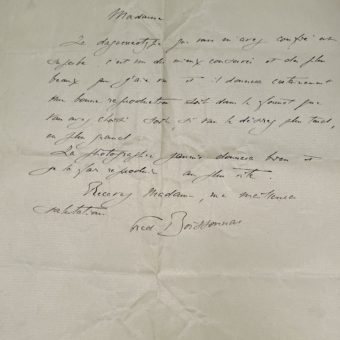 Madame
Le daguerréotype que vous m'avez confié est
superbe. c'est un des mieux conservés et des plus
beaux que j'aie vu et il donnera certainement
une bonne reproduction soit dans le format que
vous avez choisi soit, si vous le désirez plus tard,
en plus grand.
La photographie jaunie donnera bien et
je la ferai reproduire au plus vite.
Recevez Madame, mes meilleures
salutations.
Fred Boissonnas